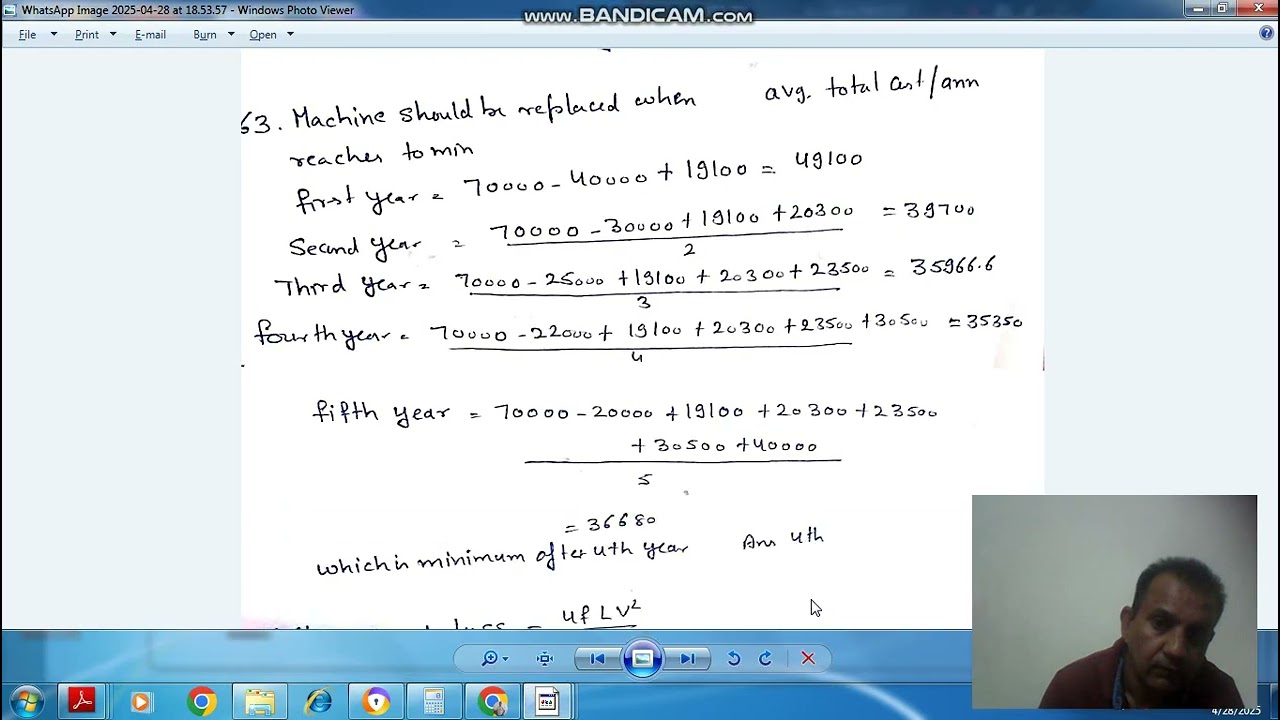 WhatsApp Image 2025-04-28 at 18.53.57 - Windows Photo Viewer
www.BANDICAM.com
File Print E-mail Burn Open
63. Machine should be replaced when avg. total cost/ann
reaches to min
first year = 70000 - 40000 + 19100 = 49100
Second year = 70000 - 30000 + 19100 + 20300 = 39700
2
Third year = 70000 - 25000 + 19100 + 20300 + 23500 = 35966.6
3
fourth year = 70000 - 22000 + 19100 + 20300 + 23500 + 30500 = 35350
4
fifth year = 70000 - 20000 + 19100 + 20300 + 23500
+ 30500 + 40000
5
= 36680
which is minimum after 4th year Ans 4th
= 4fLV²
4/28/2025